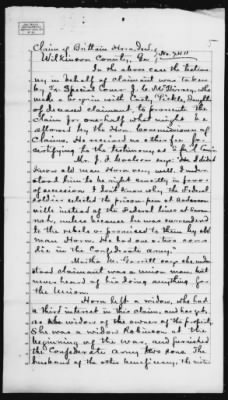 Claim of Brittain Horn, Decd. No. 7411
Wilkinson County, Ga.
In the above case the testimo-
ny in behalf of claimant was taken
by Ex Special Comr J. C. McBurney, who
made a bargain with Caody Pickle, Daughter
of deceased claimant, to present the
claim for one half what might be
allowed by the Hon. Commissioners of
Claims. He received no other fee for
certifying to the testimony as Spl Comr
Mr. J. F. says: He did not
know old man Horn very well. I under-
stood him to be right smartly in favor
of secession. I don't know why the Federal
soldier selected the prison pen at Anderson-
ville instead of the Federal lines at Savan-
nah, unless because he was surrendered
to the rebels or promised to them by old
man Horn. He had one or two sons
die in the Confederate Army."
Martha M. Garritt says she under-
stood claimant was a union man, but
never heard of his doing anything for
the Union.
Horn left a widow, who had
a third interest in this claim, and her
as the widow of the owner of the property.
She was a widow Robinson at the
beginning of the war, and furnished
the Confederate Army two sons. The
husband of the other beneficiary, the